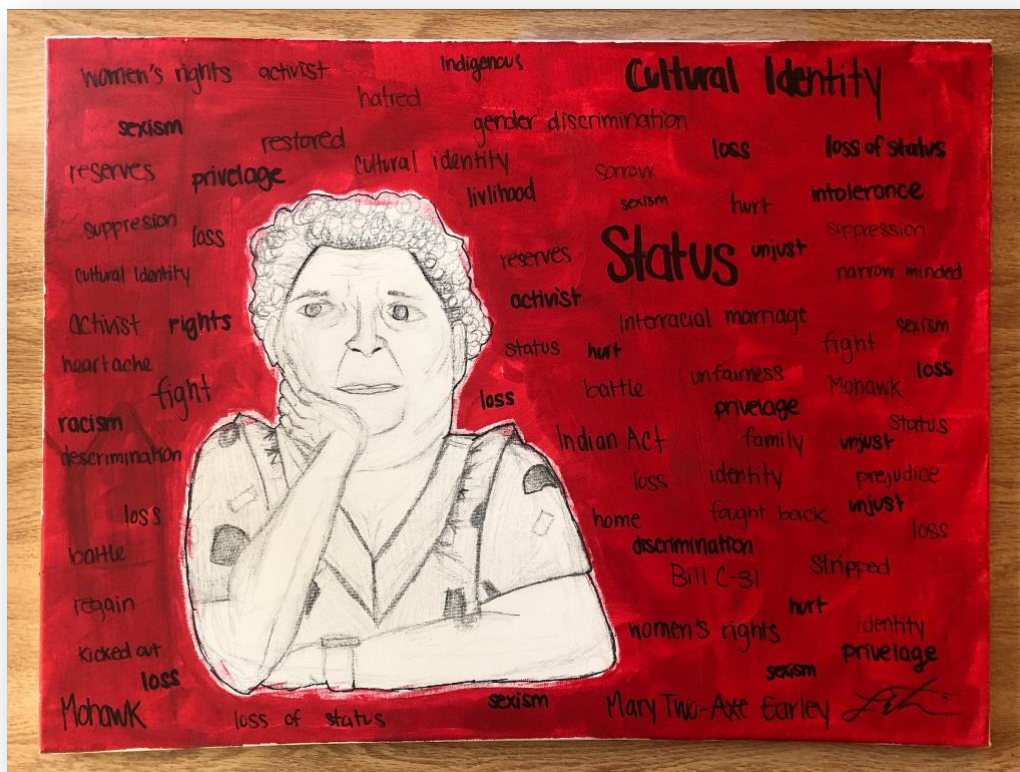 women's rights activist Indigenous Cultural Identity
hatred
sexism restored gender discrimination
reserves privelage cultural identity loss loss of status
livlihood sorrow sexism hurt intolerance
suppresion loss reserves Status unjust suppression
cultural Identity activist narrow minded
activist rights Interracial marriage sexism
heartache status hurt fight
fight loss battle unfairness Mohawk loss
racism privelage Status
descrimination Indian Act family unjust
loss identity prejudice
loss home fought back unjust loss
battle discrimination
Bill C-31 Stripped
regain hurt
kicked out women's rights identity
loss sexism privelage
Mohawk loss of status sexism Mary Two-Axe Earley